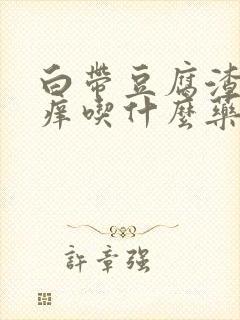 白帶豆腐渣
癢喫什麼藥
許章強